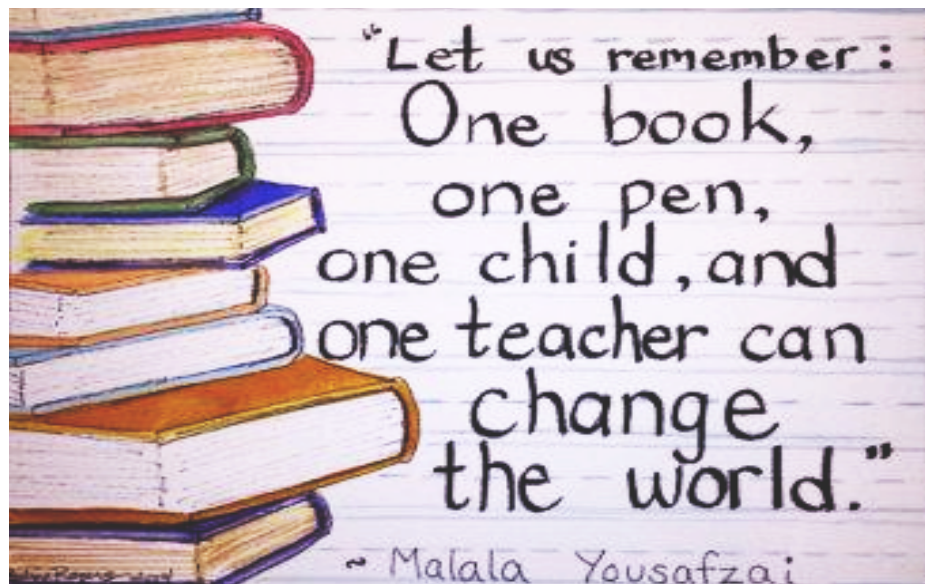 "Let us remember:
One book,
one pen,
one child, and
one teacher can
change
the world."
~ Malala Yousafzai